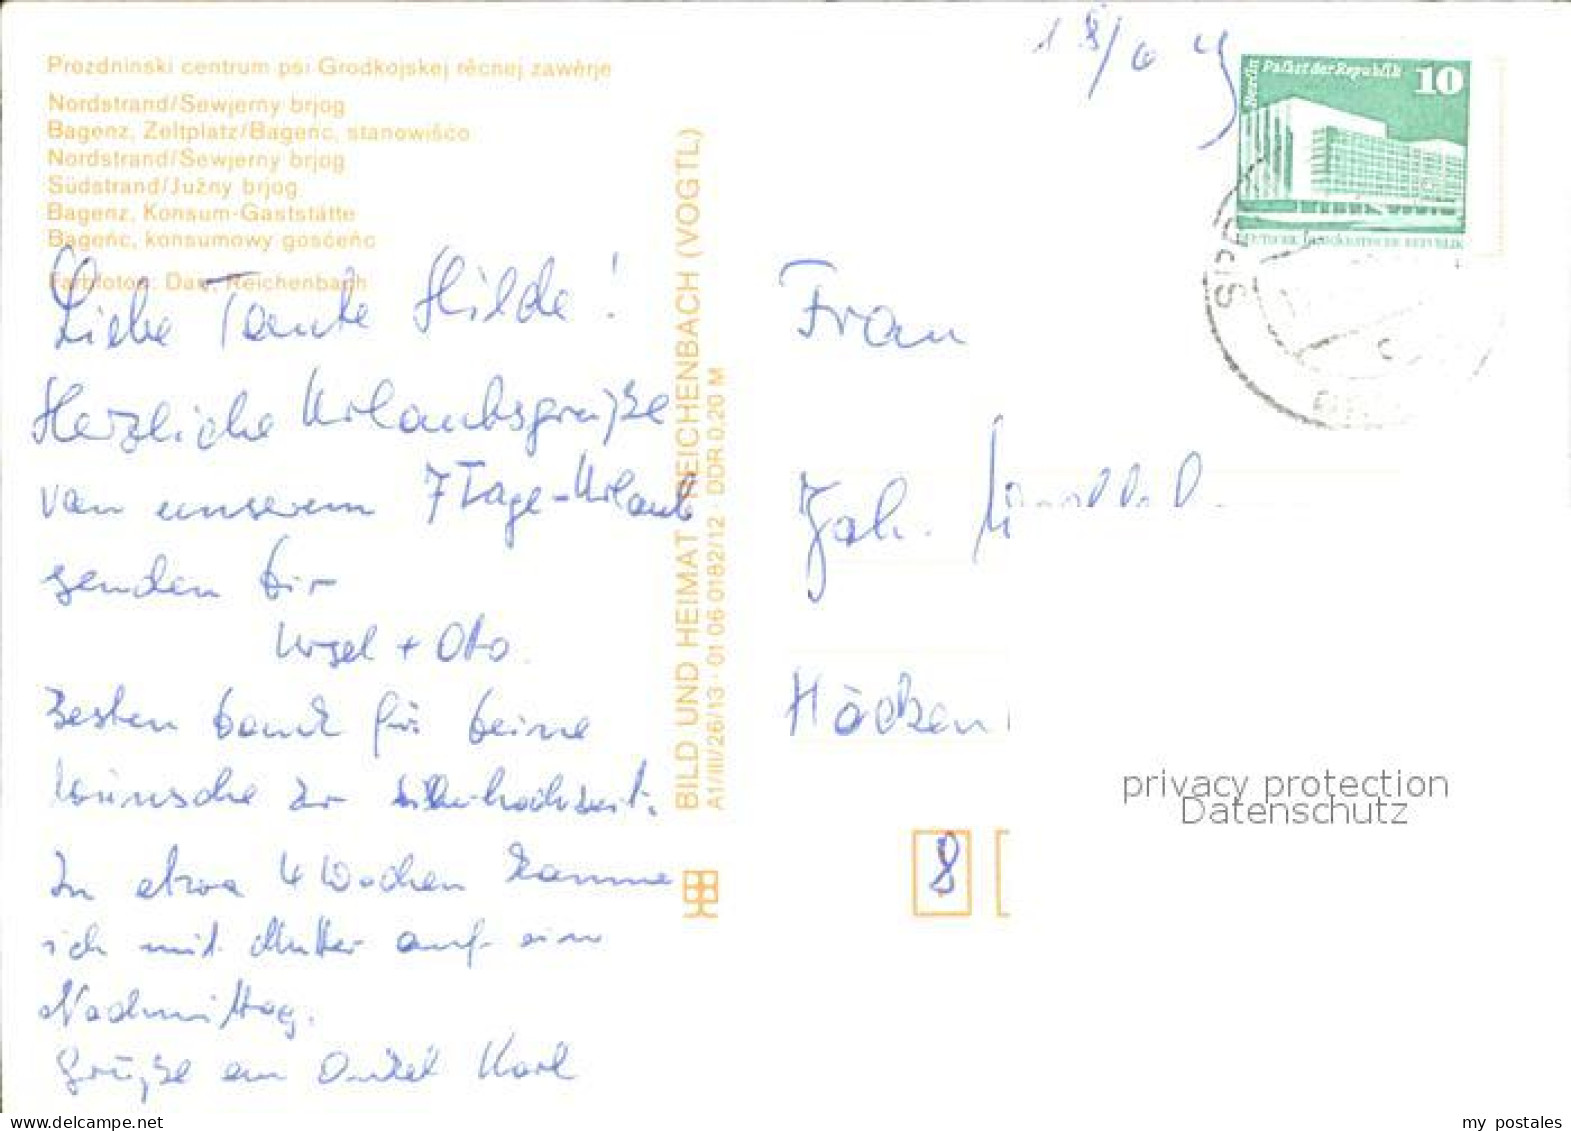 Prozdninski centrum psi Grodkojskej rěcnej zawěrje
Nordstrand/Sewjerny brjog
Bagenz, Zeltplatz/Bageńc, stanowišćo
Nordstrand/Sewjerny brjog
Südstrand/Južny brjog
Bagenz, Konsum-Gaststätte
Bageńc, konsumowy gosćeńc
Farbfotos: Daw. Reichenbach
Liebe Tante Hilde!
Herzliche Urlaubsgrüße
von unserem 7 Tage-Urlaub
senden dir
Ursel + Otto.
Besten Dank für deine
Wünsche zur Silberhochzeit.
In etwa 4 Wochen komme
ich mit Mutter auf ein
Nachmittag.
Grüße an Onkel Karl
BILD UND HEIMAT REICHENBACH (VOGTL)
A1/III/26/13 · 01 06 0182/12 · DDR 0,20 M
Berlin Palast der Republik 10
DEUTSCHE DEMOKRATISCHE REPUBLIK
Frau
Joh.
Höcken
8
privacy protection
Datenschutz
my postales